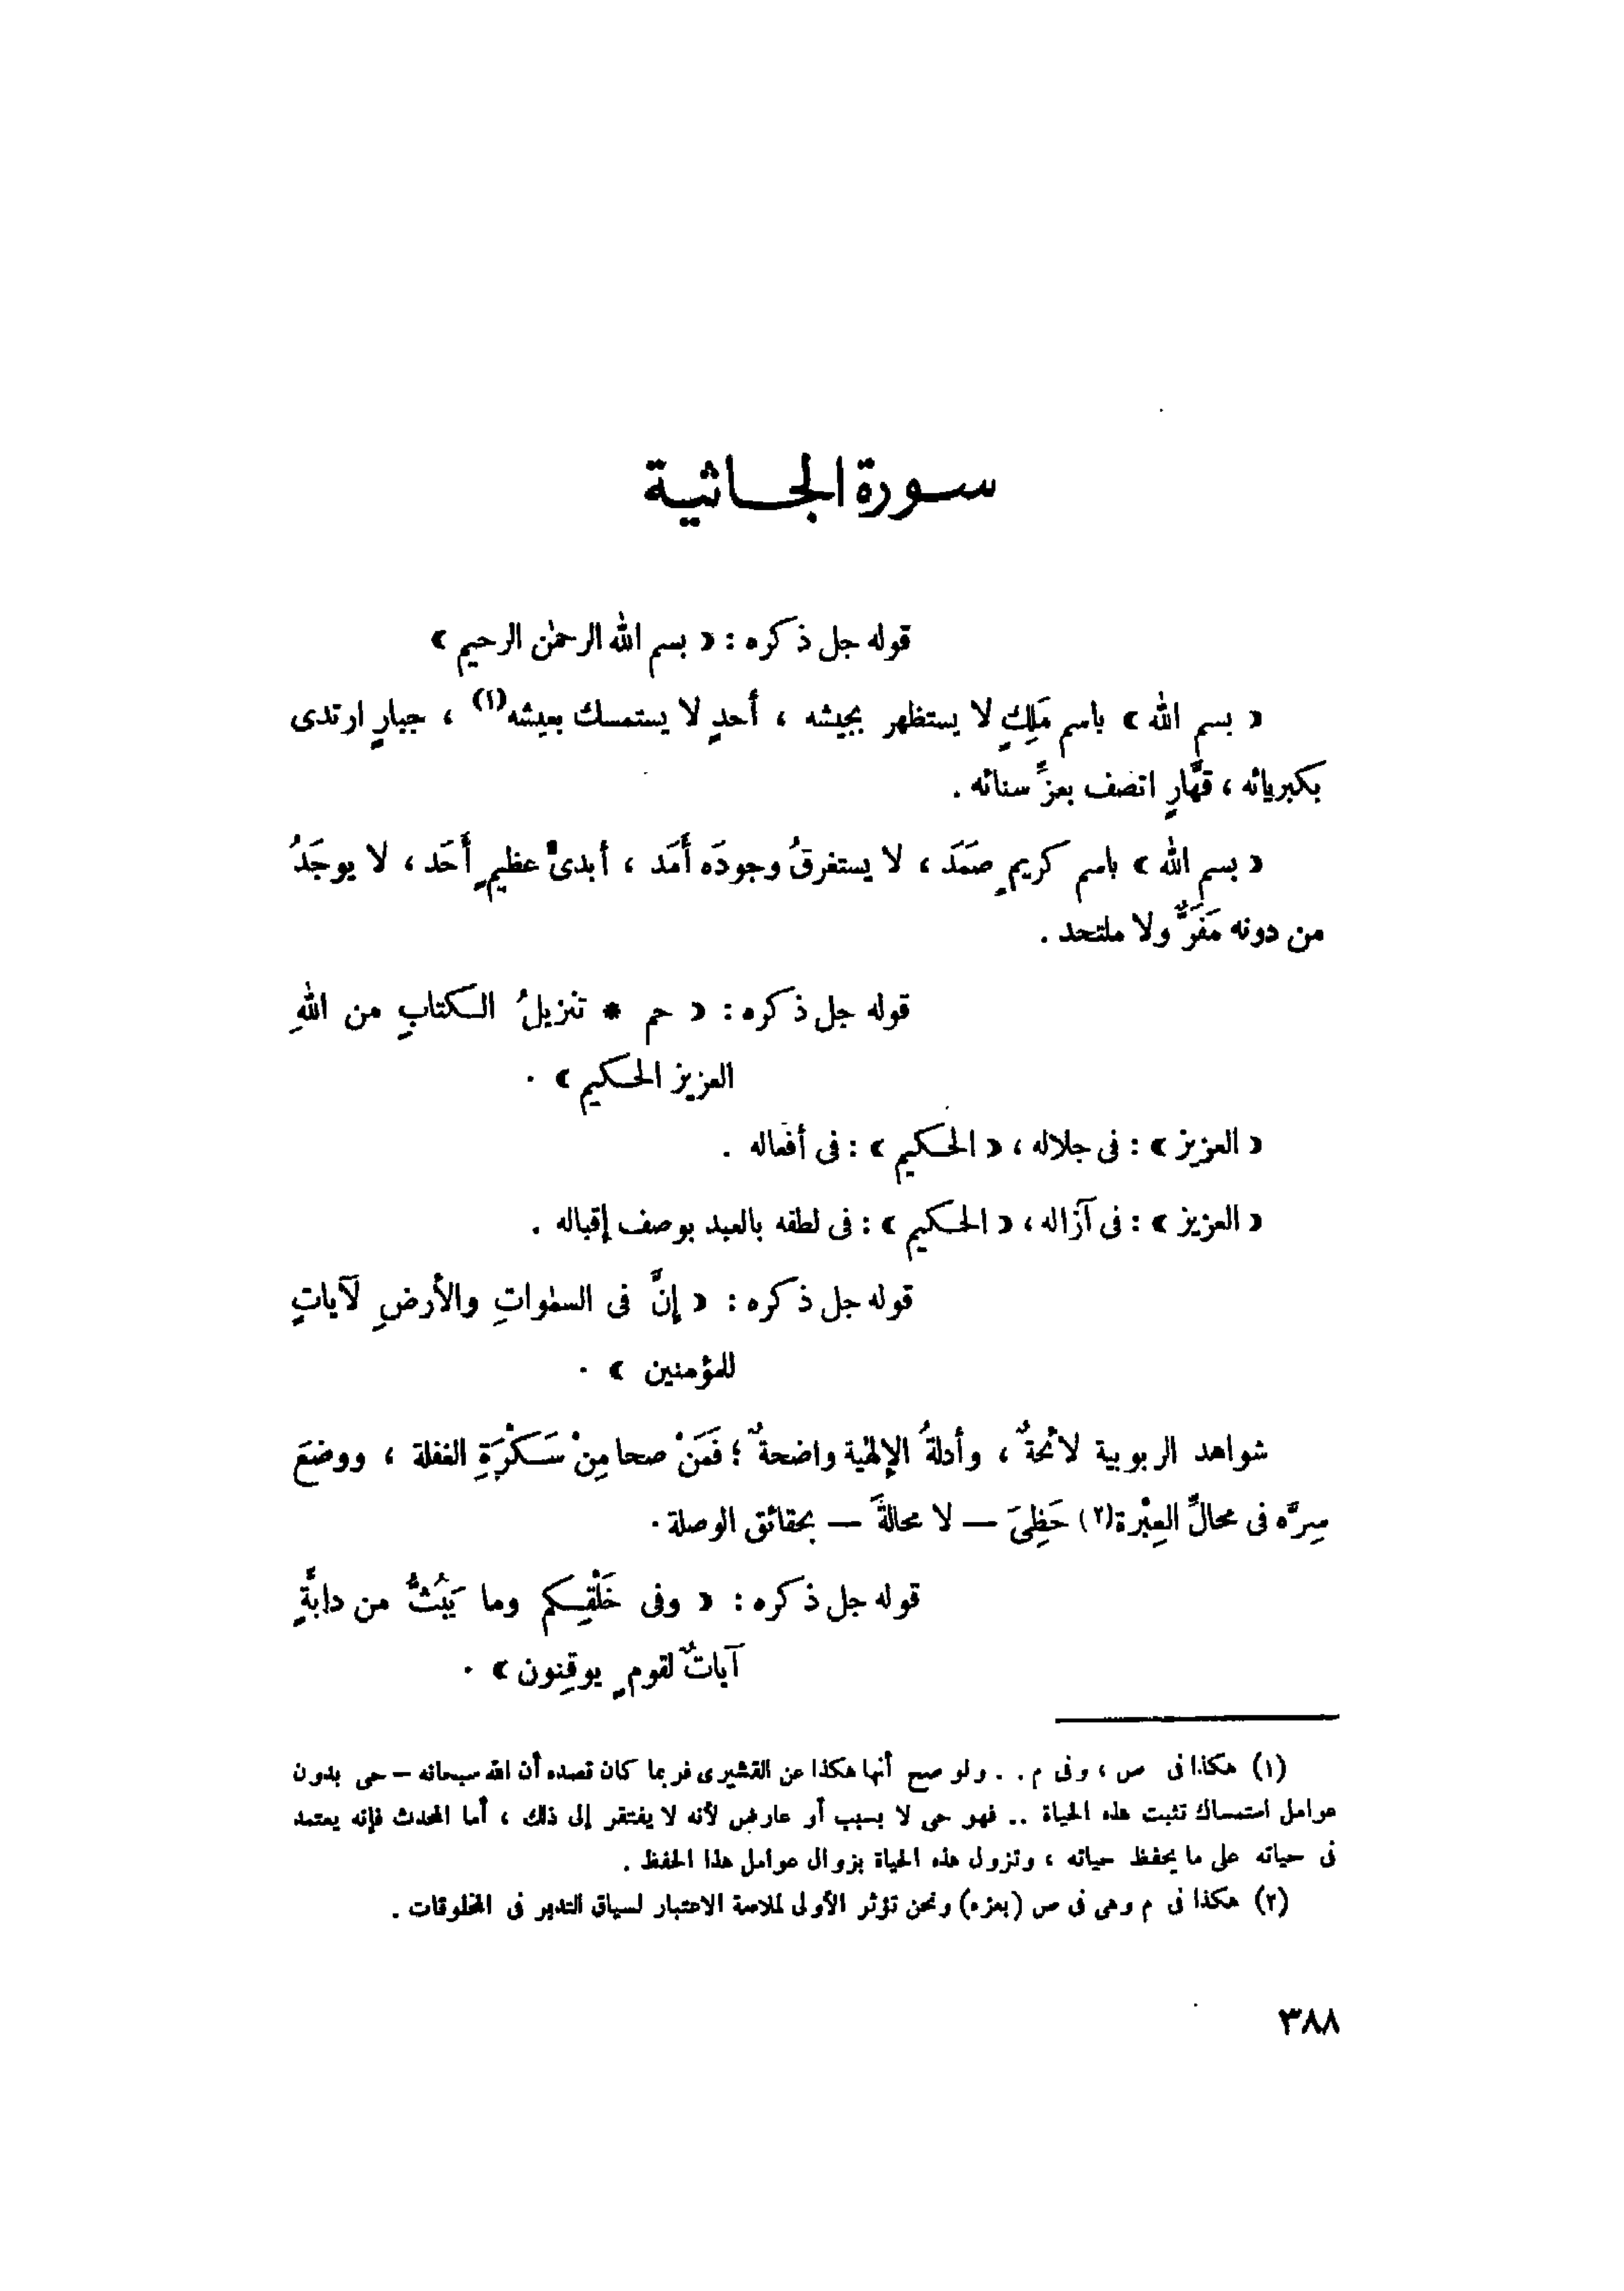 سورة الجاثية
قوله جل ذكره : « بسم الله الرحمٰن الرحيم »
« بسم الله » باسم مَلِكٍ لا يستظهر بجيشه ، أحدٍ لا يستمسك بعيشه(١) ، جبارٍ ارتدى
بكبريائه ، قهَّارٍ اتصف بعزِّ سنائه .
« بسم الله » باسم كريمٍ صَمَدَ ، لا يستغرقُ وجودَه أَمَد ، أبدىٌّ عظيمٍ أَحَد ، لا يوجَدُ
من دونه مَفَرٌّ ولا ملتحد .
قوله جل ذكره : « حم * تنزيلُ الكتابِ من اللهِ
العزيز الحكيم » .
« العزيز » : فى جلاله ، « الحكيم » : فى أفعاله .
« العزيز » : فى آزاله ، « الحكيم » : فى لطفه بالعبد بوصف إقباله .
قوله جل ذكره : « إنَّ فى السمٰواتِ والأرضِ لَآياتٍ
للمؤمنين » .
شواهد الربوبية لائحةٌ ، وأدلةُ الإلهٰية واضحةٌ ؛ فَمَنْ صحا مِنْ سَكْرَةِ الغفلة ، ووضعَ
سِرَّه فى محالِّ العِبْرة(٢) حَظِىَ — لا محالةَ — بحقائق الوصلة .
قوله جل ذكره : « وفى خَلْقِكم وما يَبُثُّ من دابَّةٍ
آياتٌ لقومٍ يوقِنون » .
(١) هكذا فى ص ، وفى م . . ولو صح أنها هكذا عن القشيرى فربما كان قصده أن الله سبحانه — حى بدون
عوامل استمساك تثبت هذه الحياة .. فهو حى لا بسبب أو عارض لأنه لا يفتقر إلى ذلك ، أما المحدث فإنه يعتمد
فى حياته على ما يحفظ حياته ، وتزول هذه الحياة بزوال عوامل هذا الحفظ .
(٢) هكذا فى م وهى فى ص (بعزه) ونحن نؤثر الأولى لملاءمة الاعتبار لسياق التدبر فى المخلوقات .
٣٨٨